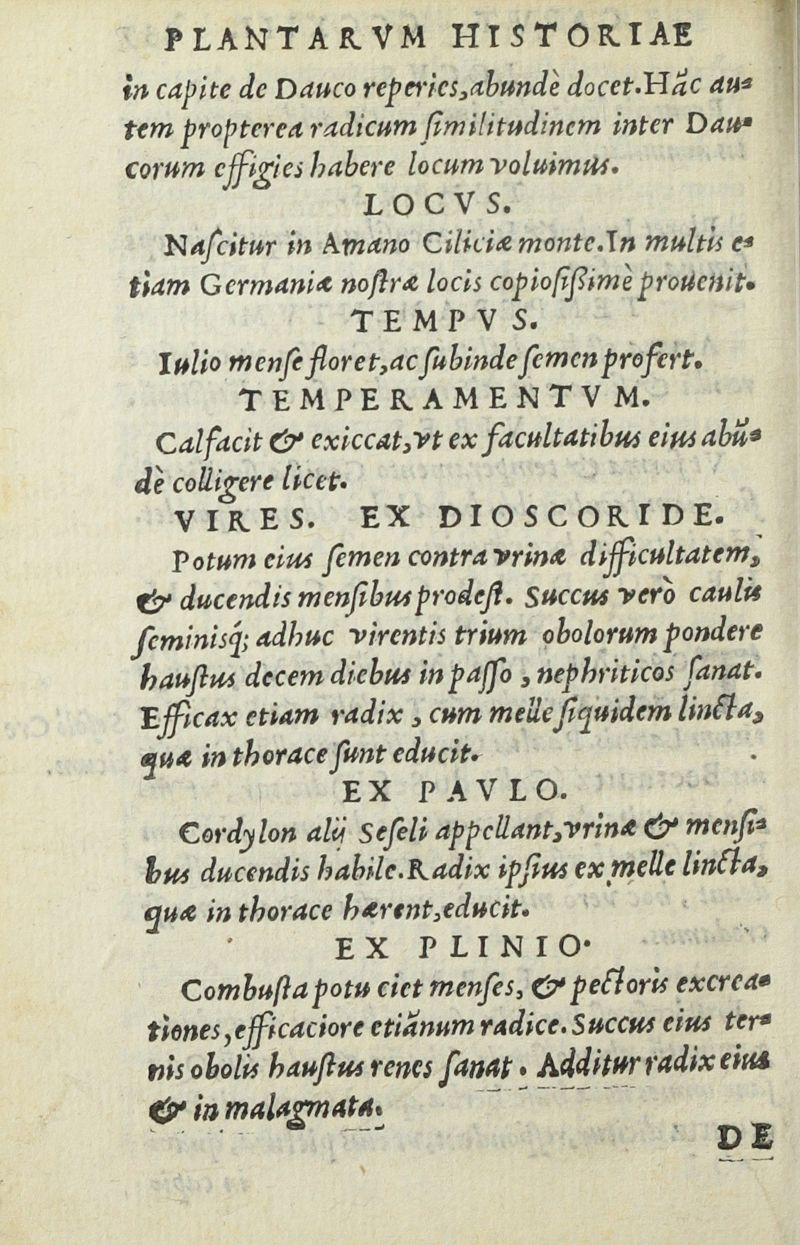 PLANTARVM HISTORIAE
in capite de Dauco reperies, abundè docet. Hãc au=
tem propterea radicum ſimilitudinem inter Dau=
corum effigies habere locum voluimus.
LOCVS.
Naſcitur in Amano Ciliciæ monte. In multis e=
tiam Germaniæ noſtræ locis copioſiſsimè prouenit.
TEMPVS.
Iulio menſe floret, ac ſubinde ſemen profert.
TEMPERAMENTVM.
Calfacit & exiccat, vt ex facultatibus eius abũ=
dè colligere licet.
VIRES. EX DIOSCORIDE.
Potum eius ſemen contra vrinæ difficultatem,
& ducendis menſibus prodeſt. Succus verò caulis
ſeminisq́; adhuc virentis trium obolorum pondere
hauſtus decem diebus in paſſo, nephriticos ſanat.
Efficax etiam radix, cum melle ſiquidem lincta,
quæ in thorace ſunt educit.
EX PAVLO.
Cordylon alij Seſeli appellant, vrinæ & menſi=
bus ducendis habile. Radix ipſius ex melle lincta,
quæ in thorace hærent, educit.
EX PLINIO.
Combuſta potu ciet menſes, & pectoris excrea=
tiones, efficaciore etiãnum radice. Succus eius ter=
nis obolis hauſtus renes ſanat. Additur radix eius
& in malagmata.
DE